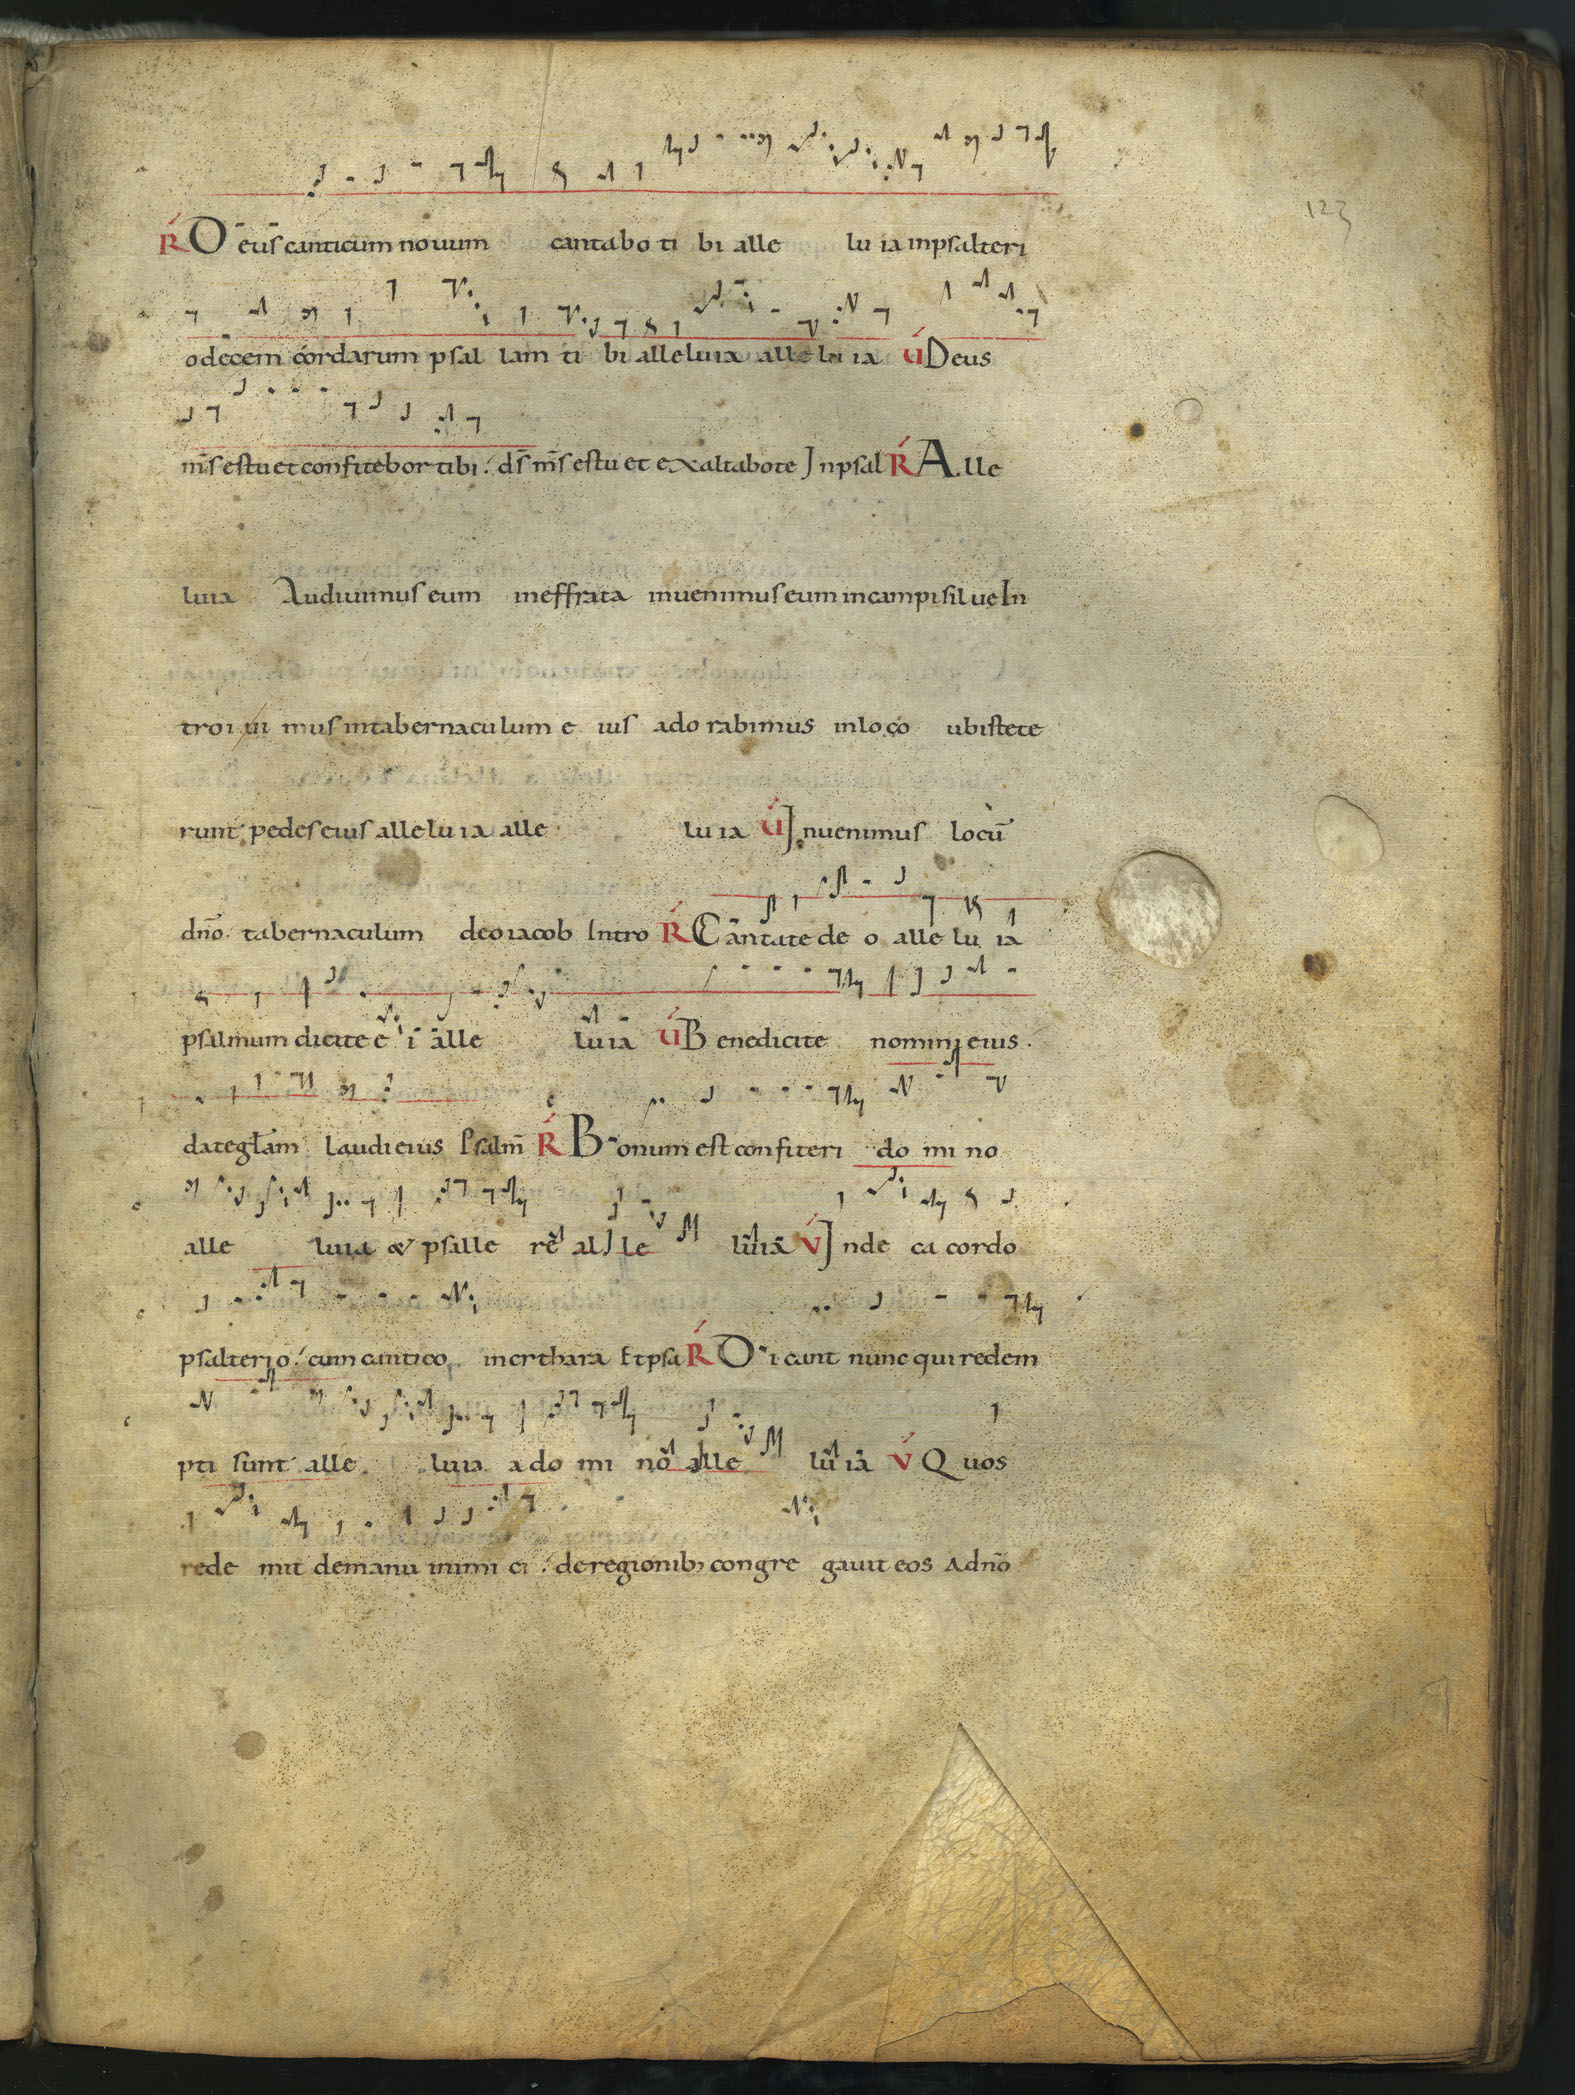 123
R Deus canticum novum cantabo ti bi alle lu ia inpsalteri
odecem cordarum psal lam ti bi alleluia alle lu ia V Deus
m̄s estu et confitebor tibi. d̄s m̄s estu et exaltabote Inpsal R Alle
luia Audivimus eum ineffrata invenimus eum incampi silve In
troi vi mus intabernaculum e ius ado rabimus inloco ubistete
runt pedes eius alle lu ia alle lu ia V Invenimus locū
dn̄o tabernaculum deo iacob Intro R Cantate de o alle lu ia
psalmum dicite e i alle lu ia V B enedicite nomini eius.
date gl̄am laudi eius Psalm̄ R B onum est confiteri do mi no
alle luia & psalle re al le luia V Inde ca cordo
psalterio. cum cantico incithara Et psa R D icant nunc qui redem
pti sunt alle luia a do mi no alle lu ia V Quos
rede mit demanu inimi ci. deregionib; congre gavit eos Adn̄o